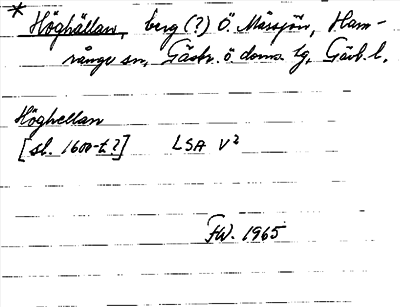 * Höghällan, berg (?) Ö. Mårsjön, Ham-
rånge sn, Gästr. ö doms. tg, Gävl. l.
Höghellan
[sl. 1600-t?] LSA V²
FW. 1965